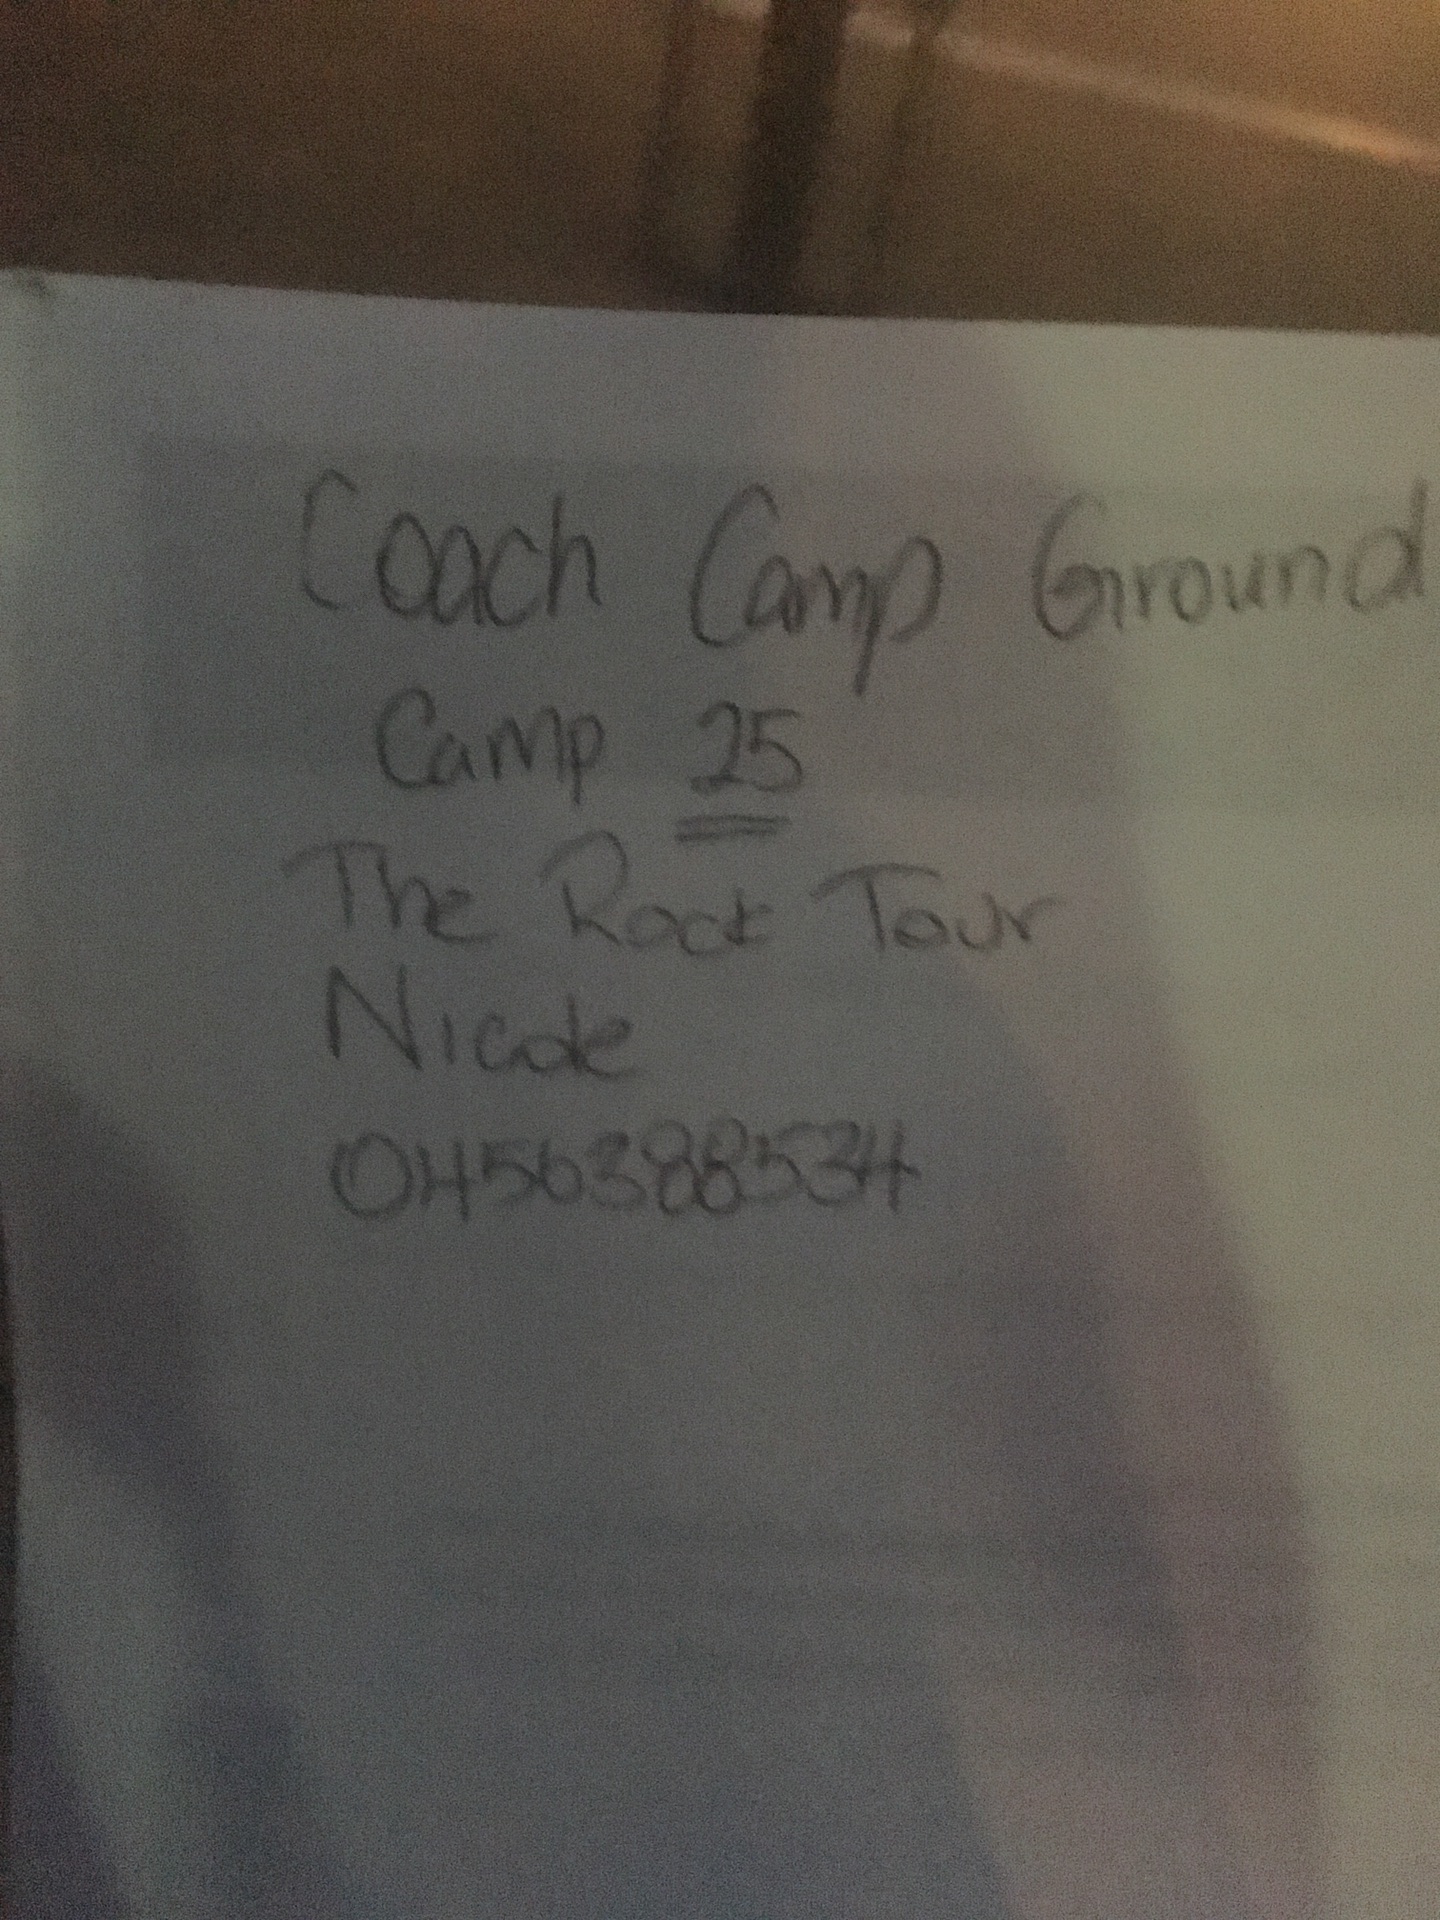 Coach Camp Ground
Camp 25
The Rock Tour
Nicole
0456388534